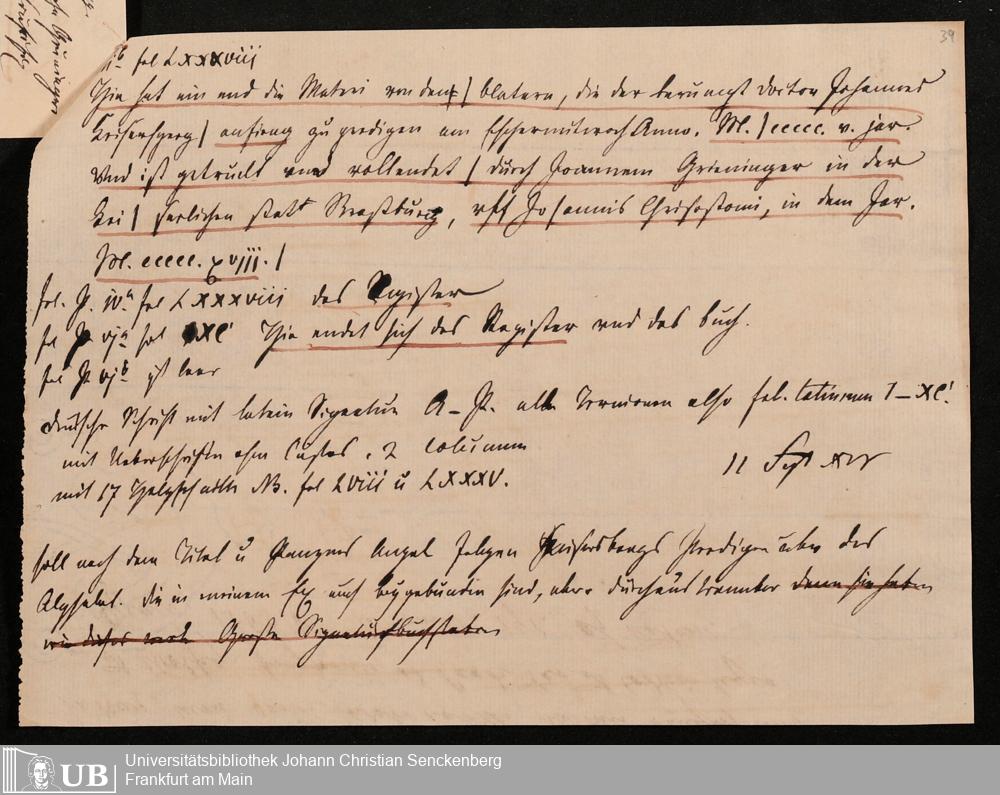 39
fol LXXXviii
Hie hat ein end die Materi von den / blatern, die der berümpt doctor Johannes
Keisersperg / anfieng zu predigen am Eschermitwoch Anno. M. / ccccc. v. jar.
Vnd ist getruckt vnd vollendet / durch Joannem Grieninger in der
Kei / serlichen statt Straßburg, vff Johannis Chrisostomi, in dem Jar.
M. ccccc. xviij. /
fol. P. iva fol LXXXviii das Register
fol P vja fol XC Hie endet sich das Register vnd das buch.
fol P vjb ist leer
deutsche Schrift mit latein Signatur A–P. alle Ternionen also fol. I–XC.
mit Ueberschriften ohne Custos. 2 Columnen
mit 17 Holzschnitten NB. fol LViii u LXXXV.
11 Sept
soll nach dem Titel u Panzers Angel folgen Kaisersbergs Predigen über das
Alphabet. die in meinem Ex auch beygebunden sind, aber durchaus denn sie haben
wie dieses Große Signaturbuchstaben
Universitätsbibliothek Johann Christian Senckenberg
Frankfurt am Main
UB